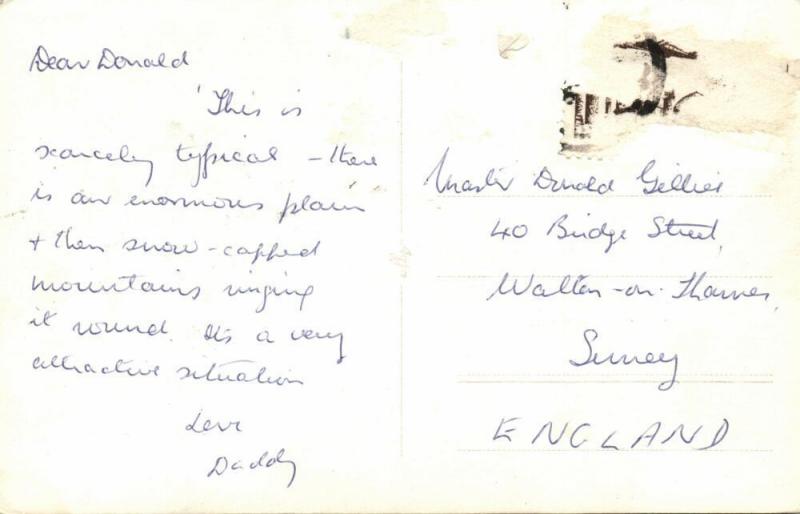 Dear Donald
This is
scarcely typical - there
is an enormous plain
+ then snow-capped
mountains ringing
it round. It's a very
attractive situation
Love
Daddy
Master Donald Gillies
40 Bridge Street,
Walton-on-Thames,
Surrey
ENGLAND